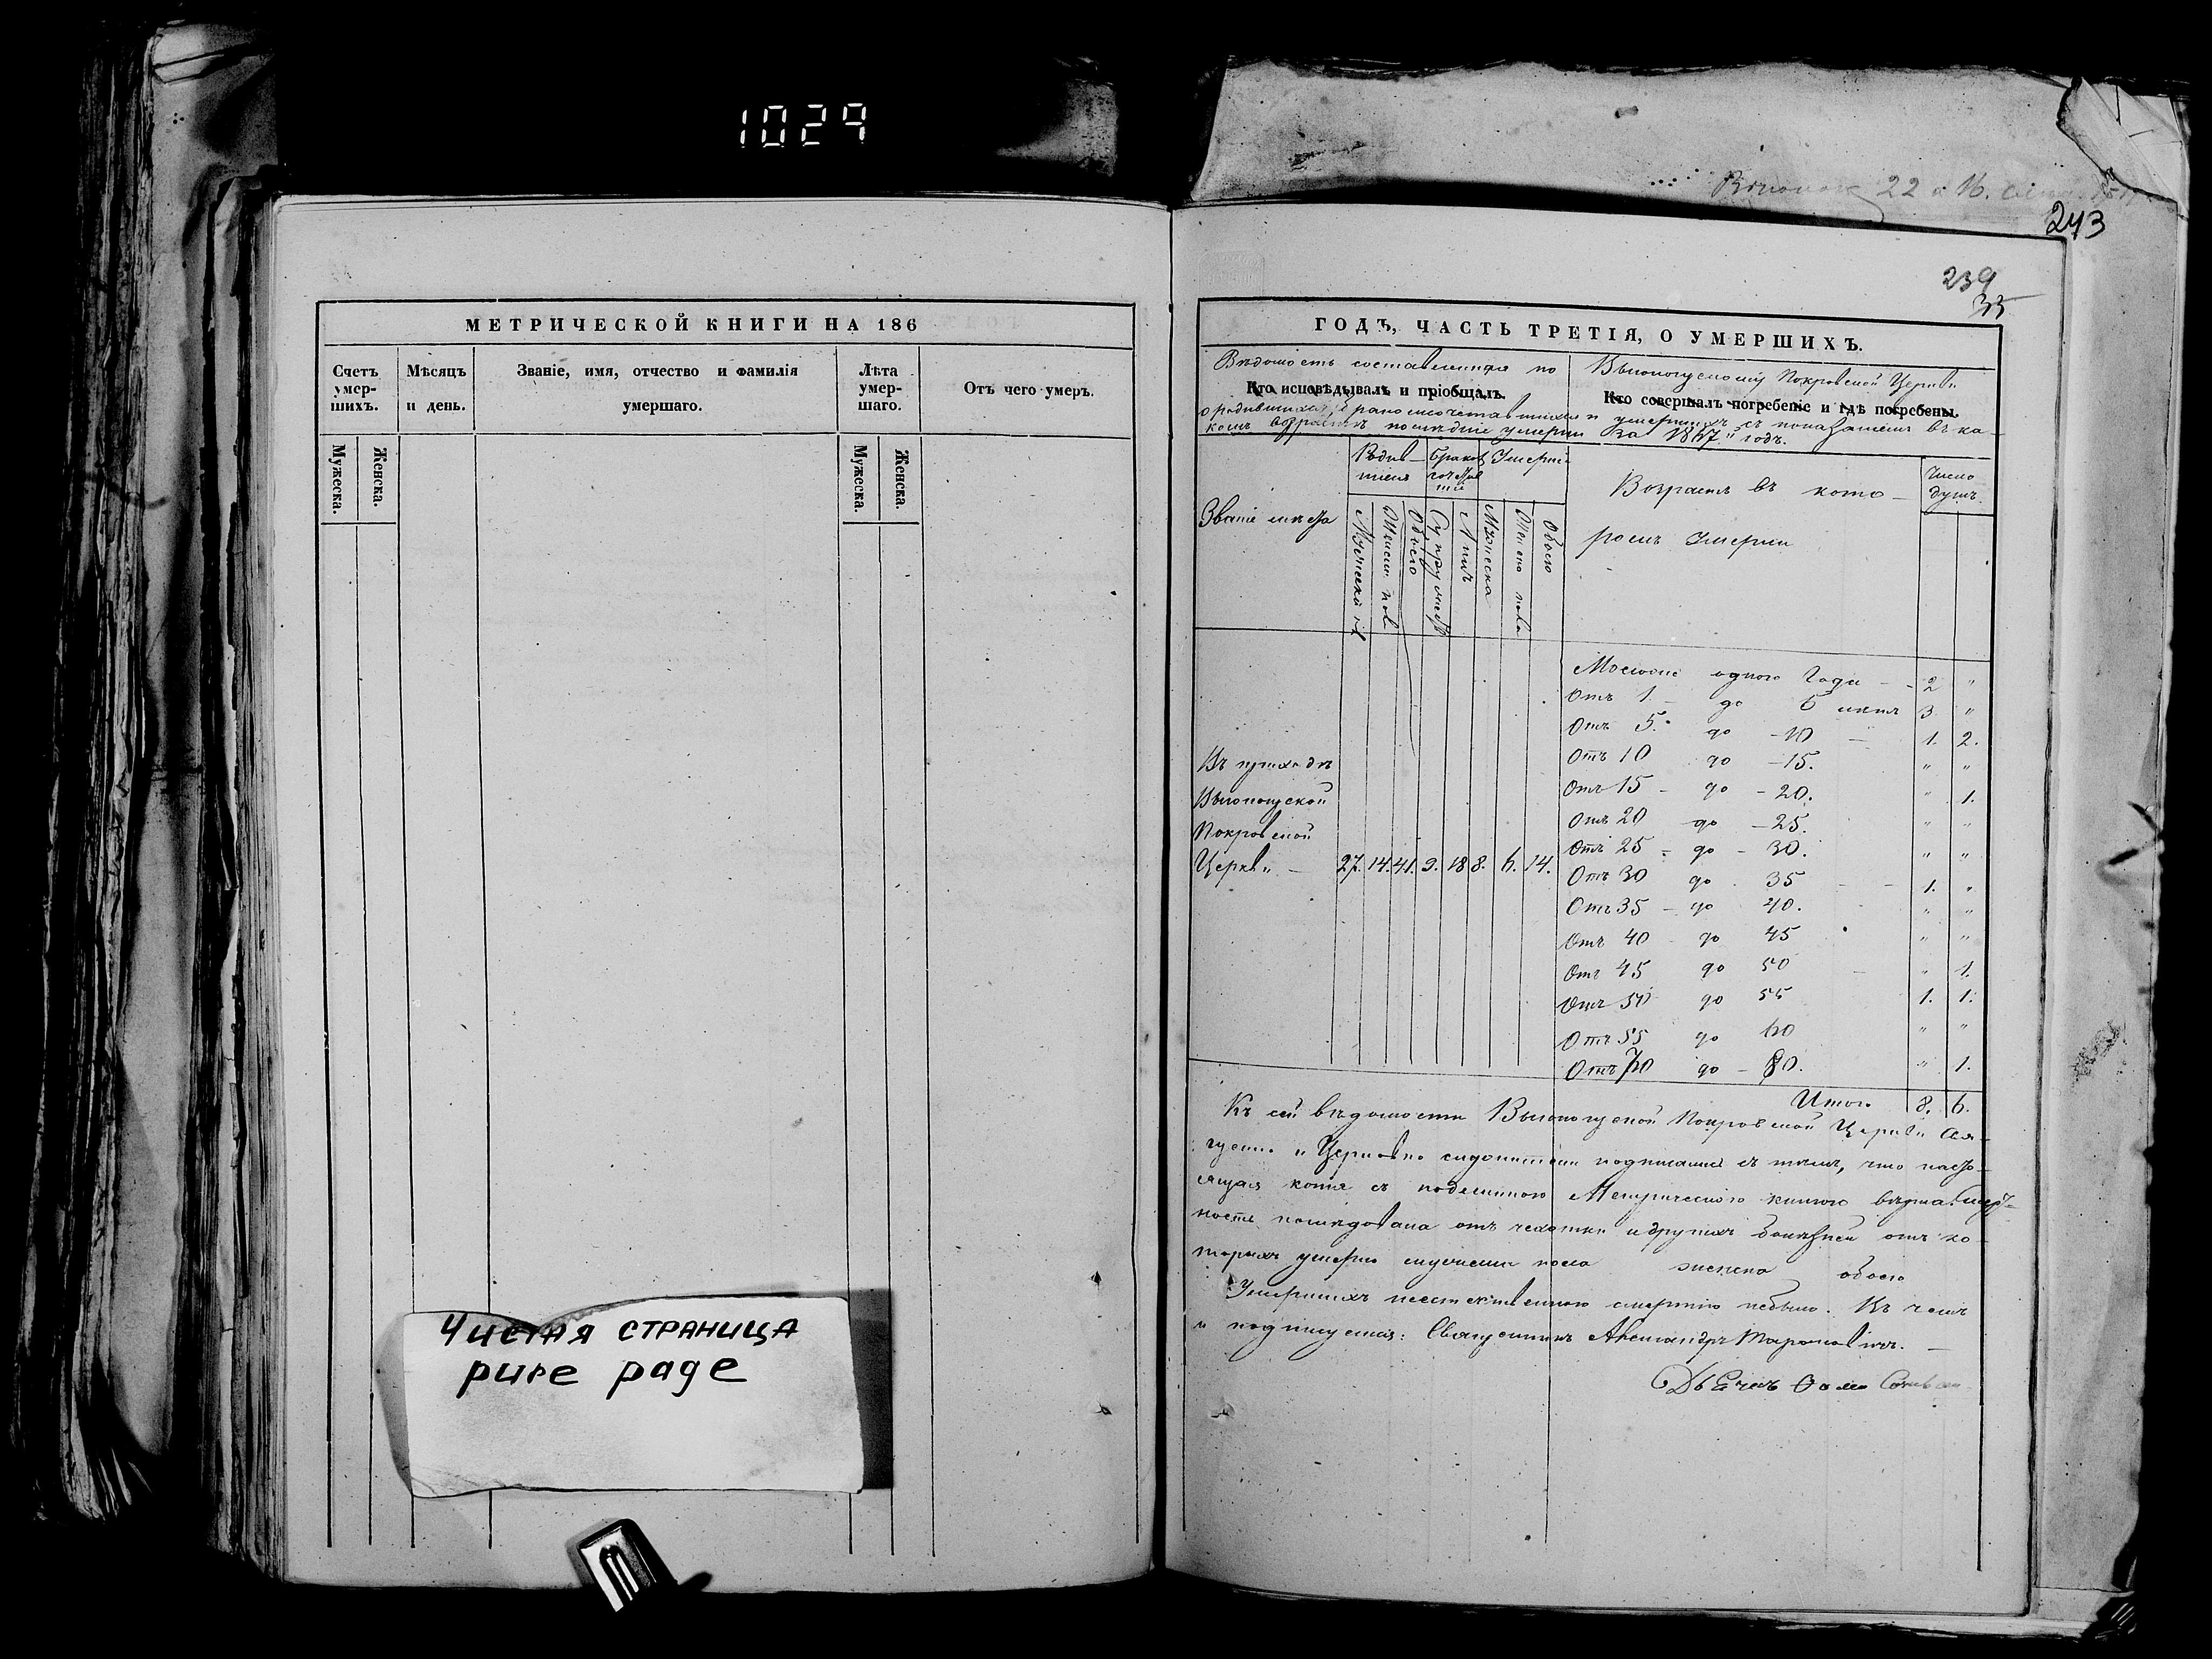 1029
МЕТРИЧЕСКОЙ КНИГИ НА 186
Счетъ умер-шихъ.
Мѣсяцъ и день.
Званіе, имя, отчество и фамилія умершаго.
Лѣта умер-шаго.
Отъ чего умеръ.
Мужеска.
Женска.
Мужеска.
Женска.
Чистая страница
pure page
22
243
239
35
ГОДЪ, ЧАСТЬ ТРЕТІЯ, О УМЕРШИХЪ.
Вѣдомость составленная по Покровской Церкви
Кто исповѣдывалъ и пріобщалъ.
Кто совершалъ погребеніе и гдѣ погребены.
о родившихся, бракосочетавшихся и умершихъ съ показаніемъ въ ка-
комъ возрастѣ послѣдніе умерли за 1867 годъ.
Званіе мѣста
Возрастъ въ кото-
ромъ Умерли
Число душъ
Мужеска
Обоего
Лицъ
Мужеска
Женска пола
Обоего
Моложе одного Года - - 2 "
Отъ 1 - до 5 лѣтъ 3. "
Отъ 5. до - 10 - 1. 2.
Отъ 10 до - 15. " "
Отъ 15 - до - 20. " 1.
Отъ 20 до - 25. " "
Отъ 25 - до - 30. " "
Отъ 30 до 35 - - 1. "
Отъ 35 - до 40. " "
Отъ 40 до 45 " "
Отъ 45 до 50 - " 1.
Отъ 50 до 55 1. 1.
Отъ 55 до 60 " "
Отъ 70 до - 80. " 1.
Итого 8. 6.
Въ приходѣ
Покровской
Церкви - 27. 14. 41. 9. 18 8. 6. 14.
Къ сей вѣдомости Покровской Церкви Свя-
подписались съ тѣмъ, что насто-
ящая копія съ подлинною Метрическою книгою вѣрна. Смерт-
ность послѣдовала отъ чахотки и другихъ болѣзней отъ ко-
торыхъ умерло мужеска пола женска обоего
Умершихъ неестественною смертію небыло. Къ чему
и подписуемся: Священникъ Александръ
Дьячекъ Фома